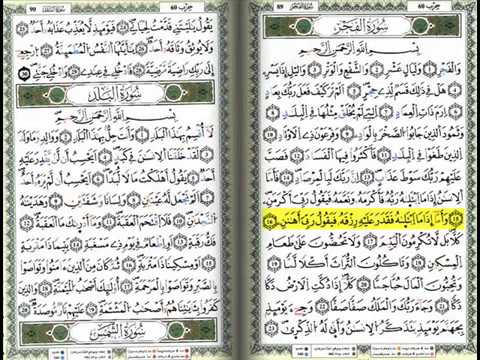 سورة الفجر 89
حزب 60
سُورَةُ الفَجْرِ
بِسْمِ ٱللَّهِ ٱلرَّحْمَٰنِ ٱلرَّحِيمِ
وَٱلْفَجْرِ ١ وَلَيَالٍ عَشْرٍ ٢ وَٱلشَّفْعِ وَٱلْوَتْرِ ٣ وَٱلَّيْلِ إِذَا يَسْرِ
٤ هَلْ فِى ذَٰلِكَ قَسَمٌ لِّذِى حِجْرٍ ٥ أَلَمْ تَرَ كَيْفَ فَعَلَ رَبُّكَ بِعَادٍ
٦ إِرَمَ ذَاتِ ٱلْعِمَادِ ٧ ٱلَّتِى لَمْ يُخْلَقْ مِثْلُهَا فِى ٱلْبِلَٰدِ ٨
وَثَمُودَ ٱلَّذِينَ جَابُوا۟ ٱلصَّخْرَ بِٱلْوَادِ ٩ وَفِرْعَوْنَ ذِى ٱلْأَوْتَادِ ١٠
ٱلَّذِينَ طَغَوْا۟ فِى ٱلْبِلَٰدِ ١١ فَأَكْثَرُوا۟ فِيهَا ٱلْفَسَادَ ١٢ فَصَبَّ
عَلَيْهِمْ رَبُّكَ سَوْطَ عَذَابٍ ١٣ إِنَّ رَبَّكَ لَبِٱلْمِرْصَادِ ١٤ فَأَمَّا
ٱلْإِنسَٰنُ إِذَا مَا ٱبْتَلَىٰهُ رَبُّهُۥ فَأَكْرَمَهُۥ وَنَعَّمَهُۥ فَيَقُولُ رَبِّىٓ أَكْرَمَنِ
١٥ وَأَمَّآ إِذَا مَا ٱبْتَلَىٰهُ فَقَدَرَ عَلَيْهِ رِزْقَهُۥ فَيَقُولُ رَبِّىٓ أَهَٰنَنِ ١٦
كَلَّا بَل لَّا تُكْرِمُونَ ٱلْيَتِيمَ ١٧ وَلَا تَحَٰٓضُّونَ عَلَىٰ طَعَامِ
ٱلْمِسْكِينِ ١٨ وَتَأْكُلُونَ ٱلتُّرَاثَ أَكْلًا لَّمًّا ١٩
وَتُحِبُّونَ ٱلْمَالَ حُبًّا جَمًّا ٢٠ كَلَّآ إِذَا دُكَّتِ ٱلْأَرْضُ دَكًّا
دَكًّا ٢١ وَجَآءَ رَبُّكَ وَٱلْمَلَكُ صَفًّا صَفًّا ٢٢ وَجِا۟ىٓءَ يَوْمَئِذٍۭ
بِجَهَنَّمَ يَوْمَئِذٍ يَتَذَكَّرُ ٱلْإِنسَٰنُ وَأَنَّىٰ لَهُ ٱلذِّكْرَىٰ ٢٣
90
حزب 60
يَقُولُ يَٰلَيْتَنِى قَدَّمْتُ لِحَيَاتِى ٢٤ فَيَوْمَئِذٍ لَّا يُعَذِّبُ عَذَابَهُۥٓ أَحَدٌ ٢٥
وَلَا يُوثِقُ وَثَاقَهُۥٓ أَحَدٌ ٢٦ يَٰٓأَيَّتُهَا ٱلنَّفْسُ ٱلْمُطْمَئِنَّةُ ٢٧ ٱرْجِعِىٓ
إِلَىٰ رَبِّكِ رَاضِيَةً مَّرْضِيَّةً ٢٨ فَٱدْخُلِى فِى عِبَٰدِى ٢٩ وَٱدْخُلِى جَنَّتِى ٣٠
سُورَةُ البَلَدِ
بِسْمِ ٱللَّهِ ٱلرَّحْمَٰنِ ٱلرَّحِيمِ
لَآ أُقْسِمُ بِهَٰذَا ٱلْبَلَدِ ١ وَأَنتَ حِلٌّۢ بِهَٰذَا ٱلْبَلَدِ ٢ وَوَالِدٍ وَمَا وَلَدَ
٣ لَقَدْ خَلَقْنَا ٱلْإِنسَٰنَ فِى كَبَدٍ ٤ أَيَحْسَبُ أَن لَّن يَقْدِرَ عَلَيْهِ
أَحَدٌ ٥ يَقُولُ أَهْلَكْتُ مَالًا لُّبَدًا ٦ أَيَحْسَبُ أَن لَّمْ يَرَهُۥٓ أَحَدٌ ٧
أَلَمْ نَجْعَل لَّهُۥ عَيْنَيْنِ ٨ وَلِسَانًا وَشَفَتَيْنِ ٩ وَهَدَيْنَٰهُ
ٱلنَّجْدَيْنِ ١٠ فَلَا ٱقْتَحَمَ ٱلْعَقَبَةَ ١١ وَمَآ أَدْرَىٰكَ مَا ٱلْعَقَبَةُ ١٢
فَكُّ رَقَبَةٍ ١٣ أَوْ إِطْعَٰمٌ فِى يَوْمٍ ذِى مَسْغَبَةٍ ١٤ يَتِيمًا ذَا مَقْرَبَةٍ
١٥ أَوْ مِسْكِينًا ذَا مَتْرَبَةٍ ١٦ ثُمَّ كَانَ مِنَ ٱلَّذِينَ ءَامَنُوا۟ وَتَوَاصَوْا۟
بِٱلصَّبْرِ وَتَوَاصَوْا۟ بِٱلْمَرْحَمَةِ ١٧ أُو۟لَٰٓئِكَ أَصْحَٰبُ ٱلْمَيْمَنَةِ ١٨
وَٱلَّذِينَ كَفَرُوا۟ بِـَٔايَٰتِنَا هُمْ أَصْحَٰبُ ٱلْمَشْـَٔمَةِ ١٩ عَلَيْهِمْ نَارٌ مُّؤْصَدَةٌۢ ٢٠
سُورَةُ الشَّمْسِ